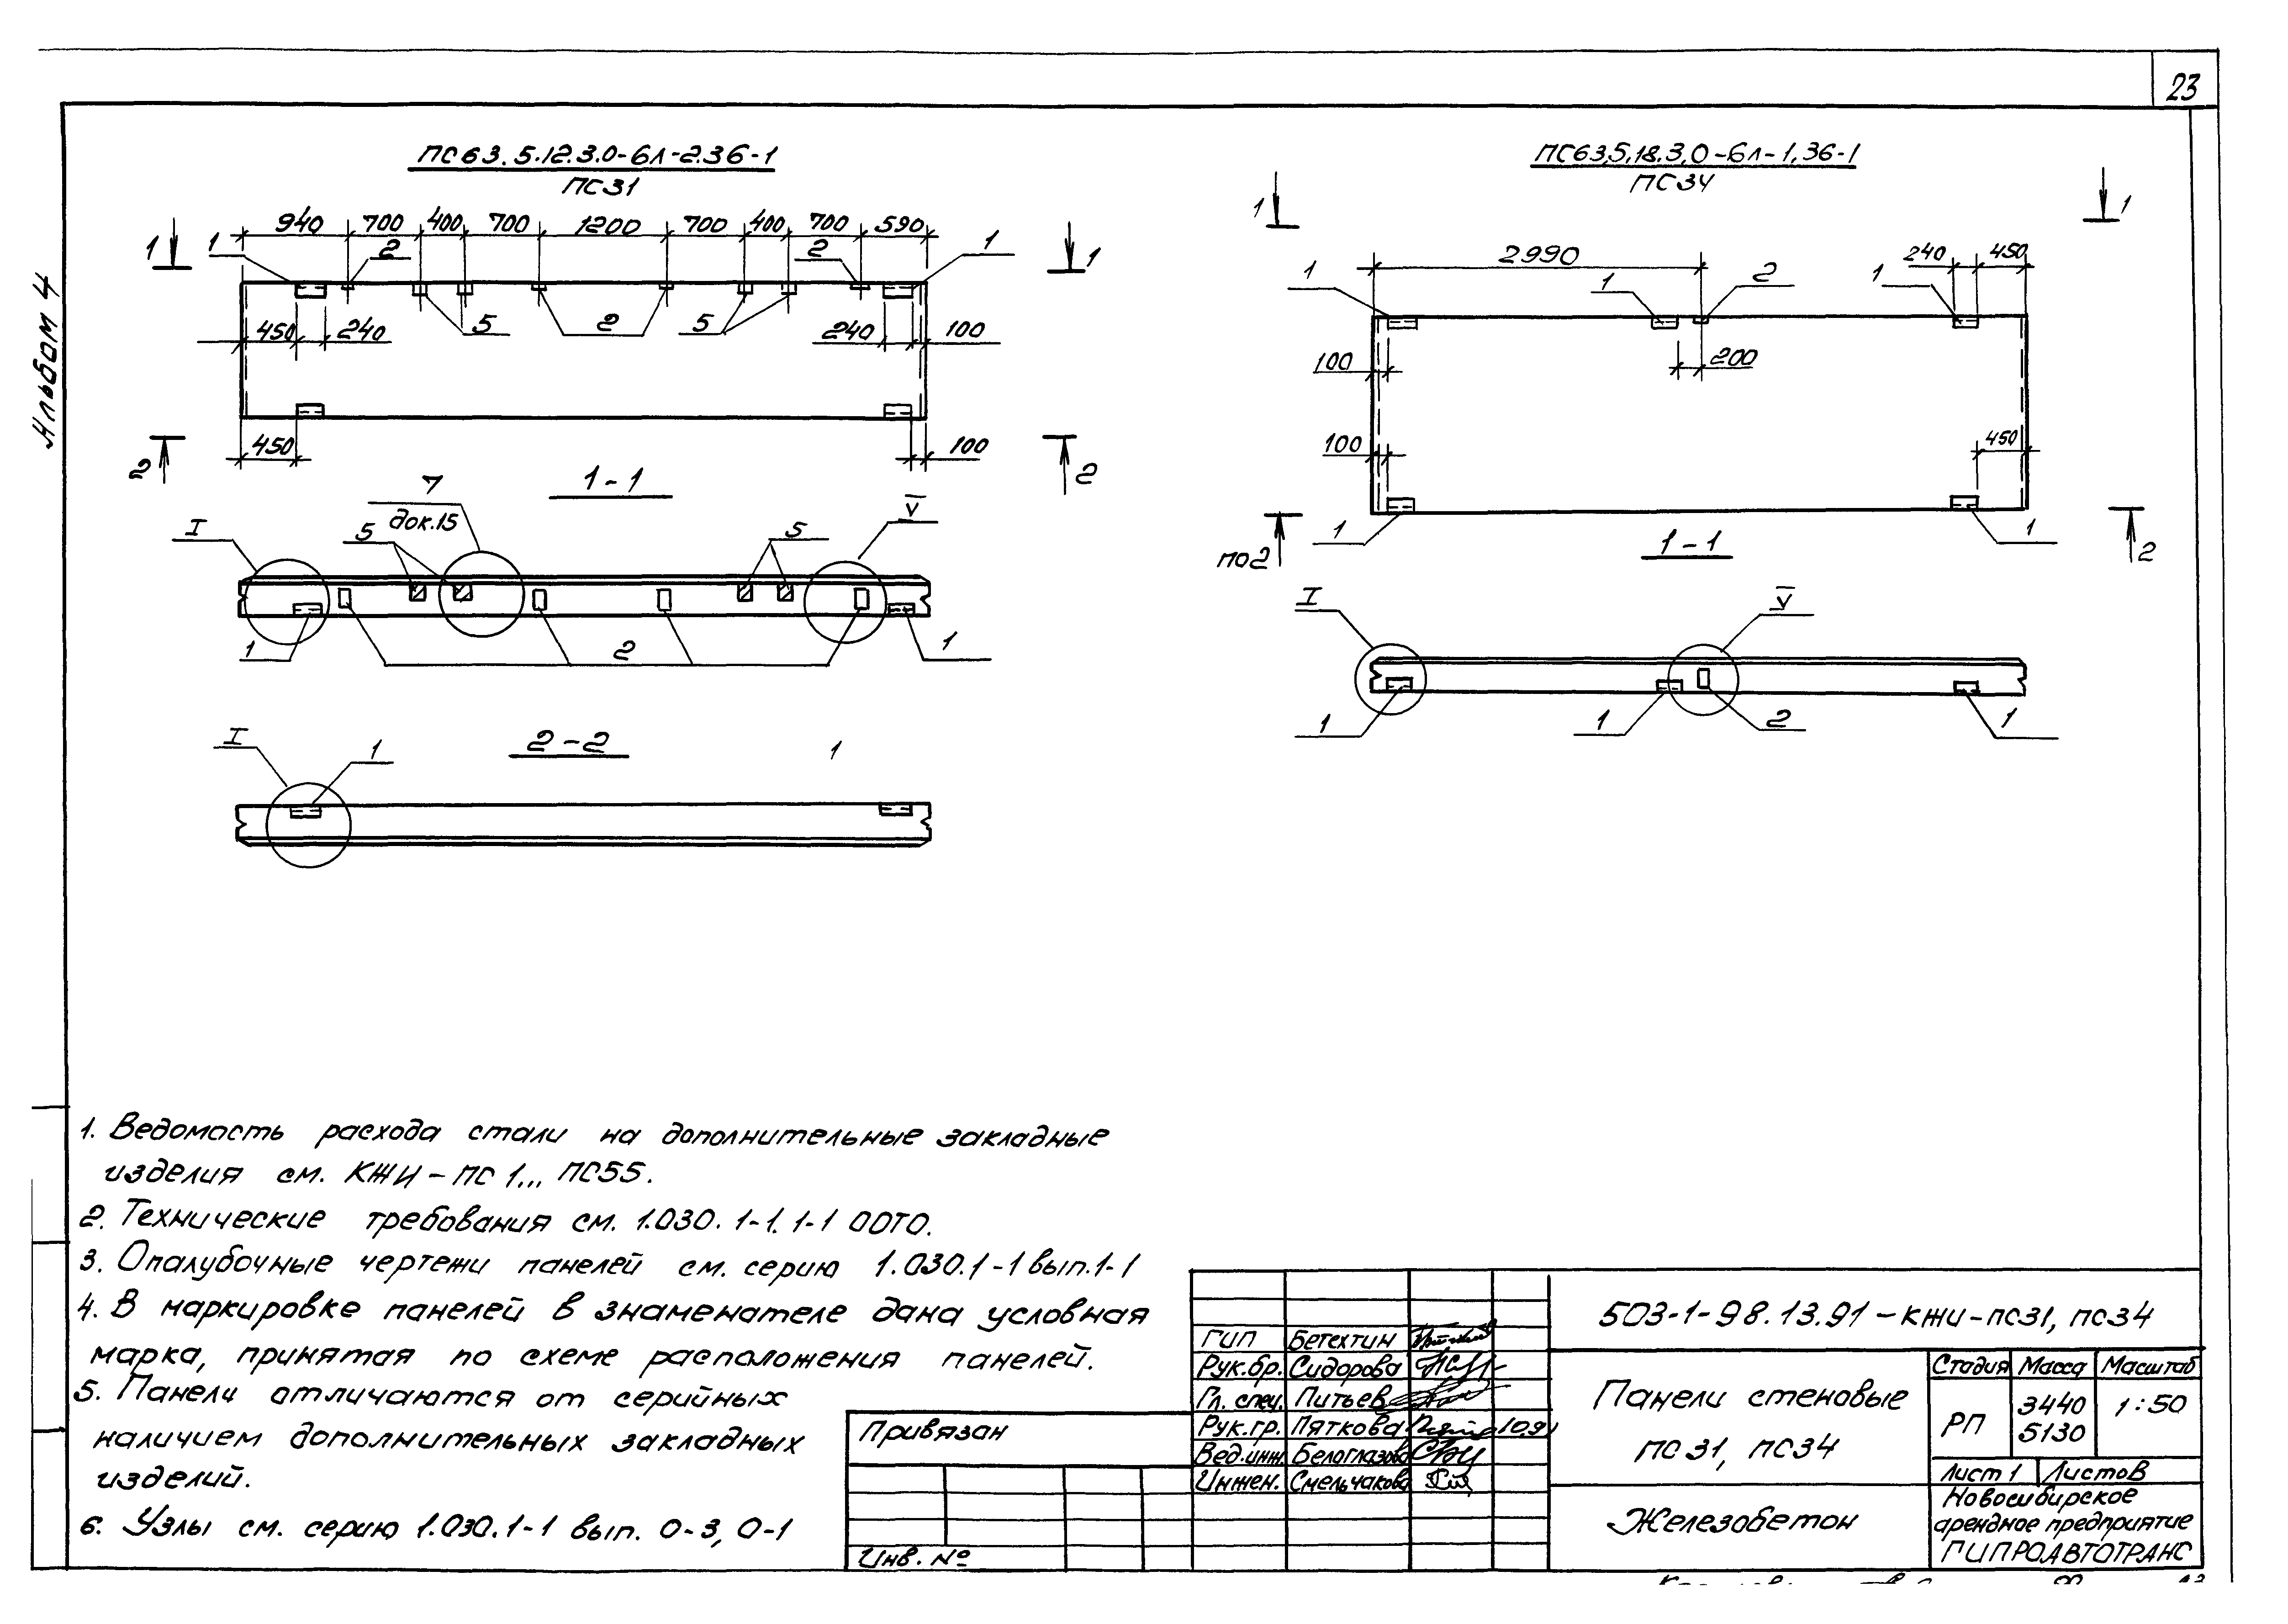 23
Альбом 4
ПС63.5.12.3.0-6л-2.36-1
ПС31
940 700 400 700 1200 700 400 700 590
1 1 2 2 1 1
450 240 5 2 5 240 100
450 100
2 2
1-1
I 5 7 док.15 5 V
1 2 1
2-2
I 1 1
ПС63,5,18.3,0-6л-1,36-1
ПС34
1 1
2990 240 450
1 1 2 1
100 200
100 450
1 1
по2 2
1-1
I V
1 1 2 1
1. Ведомость расхода стали на дополнительные закладные
изделия см. КЖИ-ПС 1... ПС55.
2. Технические требования см. 1.030. 1-1. 1-1 00ТО.
3. Опалубочные чертежи панелей см. серию 1.030.1-1 вып.1-1
4. В маркировке панелей в знаменателе дана условная
марка, принятая по схеме расположения панелей.
5. Панели отличаются от серийных
наличием дополнительных закладных
изделий.
6. Узлы см. серию 1.030.1-1 вып. 0-3, 0-1
Привязан
Инв. №
ГИП Бетехтин
Рук.бр. Сидорова
Гл. спец. Питьев
Рук.гр. Пяткова 10.91
Вед.инж Белоглазова
Инжен. Смельчакова
503-1-98.13.91-КЖИ-ПС31, ПС34
Панели стеновые
ПС31, ПС34
Стадия Масса Масштаб
РП 3440 5130 1:50
Лист 1 Листов
Железобетон
Новосибирское
арендное предприятие
ГИПРОАВТОТРАНС